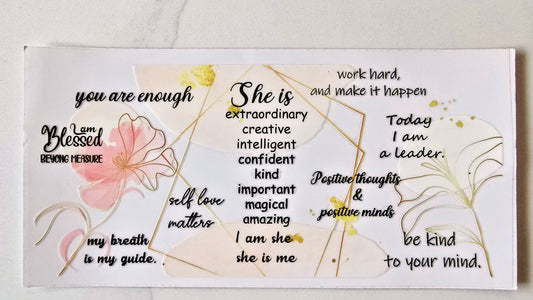 you are enough
I am
Blessed
BEYONG MEASURE
self love
matters
my breath
is my guide.
She is
extraordinary
creative
intelligent
confident
kind
important
magical
amazing
I am she
she is me
work hard,
and make it happen
Today
I am
a leader.
Positive thoughts
&
positive minds
be kind
to your mind.